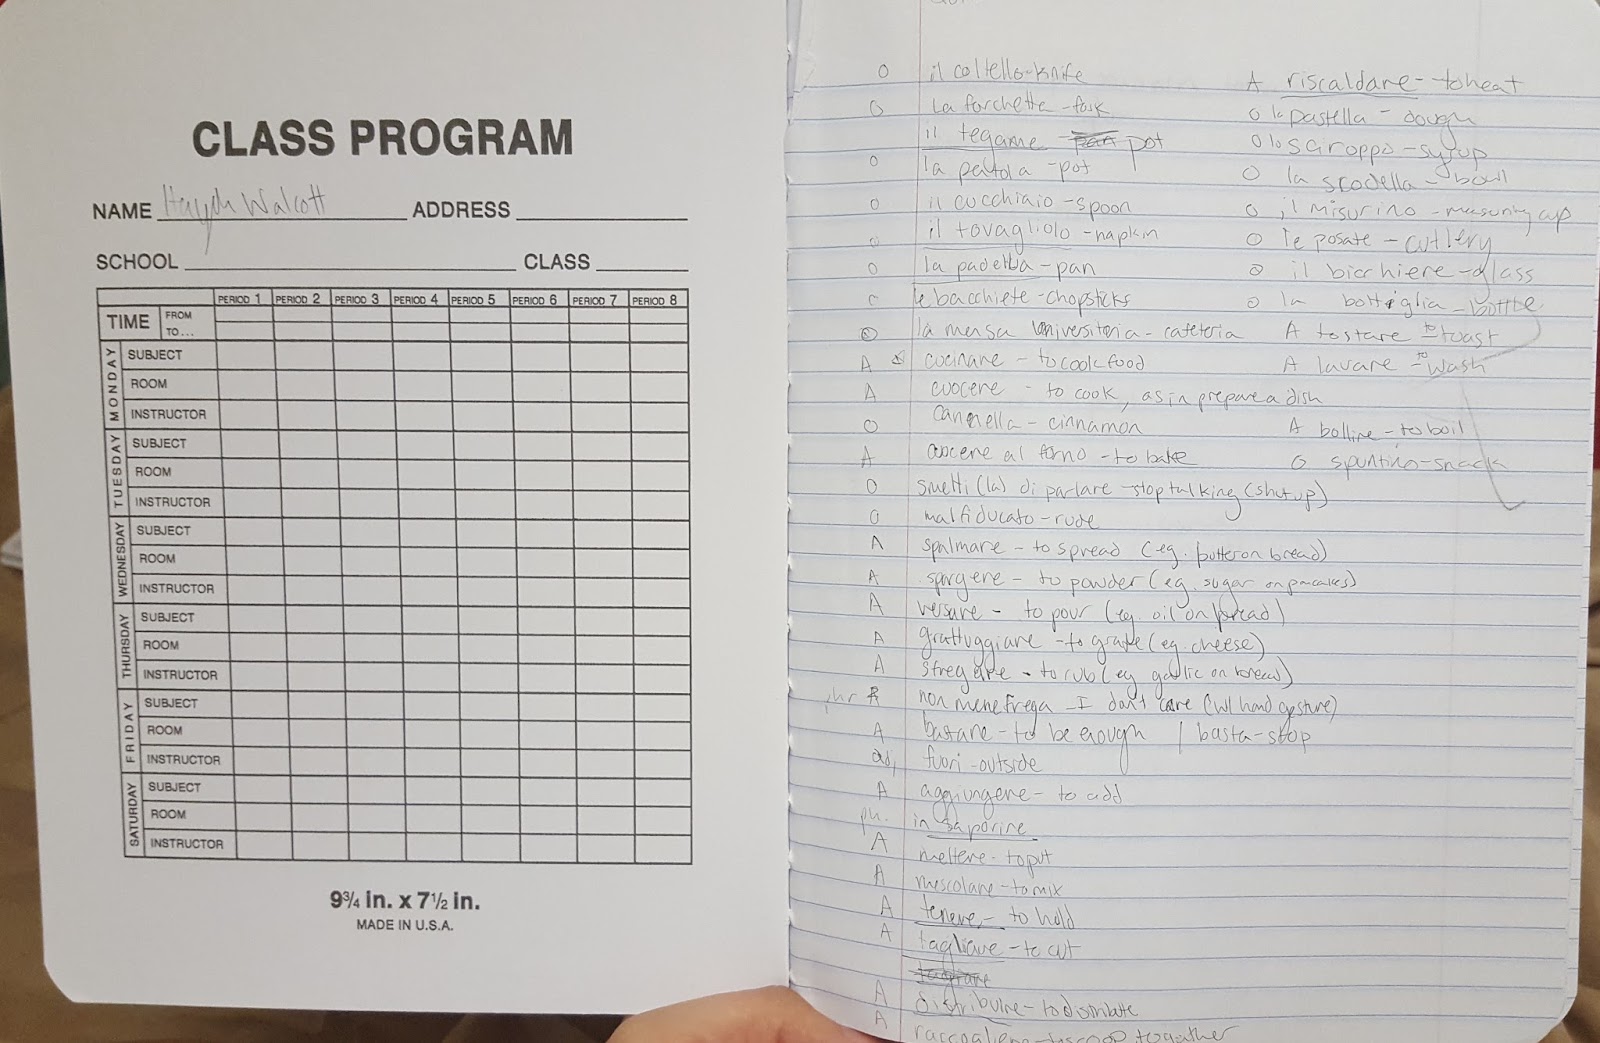 CLASS PROGRAM
NAME Walcott ADDRESS
SCHOOL CLASS
PERIOD 1 PERIOD 2 PERIOD 3 PERIOD 4 PERIOD 5 PERIOD 6 PERIOD 7 PERIOD 8
TIME FROM TO...
MONDAY
SUBJECT
ROOM
INSTRUCTOR
TUESDAY
SUBJECT
ROOM
INSTRUCTOR
WEDNESDAY
SUBJECT
ROOM
INSTRUCTOR
THURSDAY
SUBJECT
ROOM
INSTRUCTOR
FRIDAY
SUBJECT
ROOM
INSTRUCTOR
SATURDAY
SUBJECT
ROOM
INSTRUCTOR
9¾ in. x 7½ in.
MADE IN U.S.A.
O il coltello-knife
O la forchette-fork
il tegame - pot
O la patola-pot
O il cucchiaio-spoon
O il tovagliolo-napkin
O la padella-pan
O le bacchiete-chopsticks
O la mensa universitoria-cafeteria
A cucinare - to cook food
A cuocere - to cook, as in prepare a dish
O cannella - cinnamon
A cuocere al forno - to bake
O smetti (la) di parlare - stop talking (shut up)
O malfiducato-rude
A spalmare - to spread (eg. butter on bread)
A spargere - to powder (eg. sugar on pancakes)
A versare - to pour (eg. oil on bread)
A grattuggiare - to grate (eg. cheese)
A stregare - to rub (eg garlic on bread)
phr non me ne frega - I don't care (w/ hand gesture)
A bastare - to be enough / basta-stop
adj fuori-outside
A aggiungere - to add
ph. insaporire
A mettere - to put
A mescolare-to mix
A tenere - to hold
A tagliare - to cut
A distribuire-to distribute
A raccogliere-to scoop together
A riscaldare - to heat
O la pastella - dough
O lo sciroppo-syrup
O la scodella - bowl
O il misurino - measuring cup
O le posate - cutlery
O il bicchiere-glass
O la bottiglia - bottle
A tostare - to toast
A lavare - to wash
A bollire - to boil
O spuntino-snack